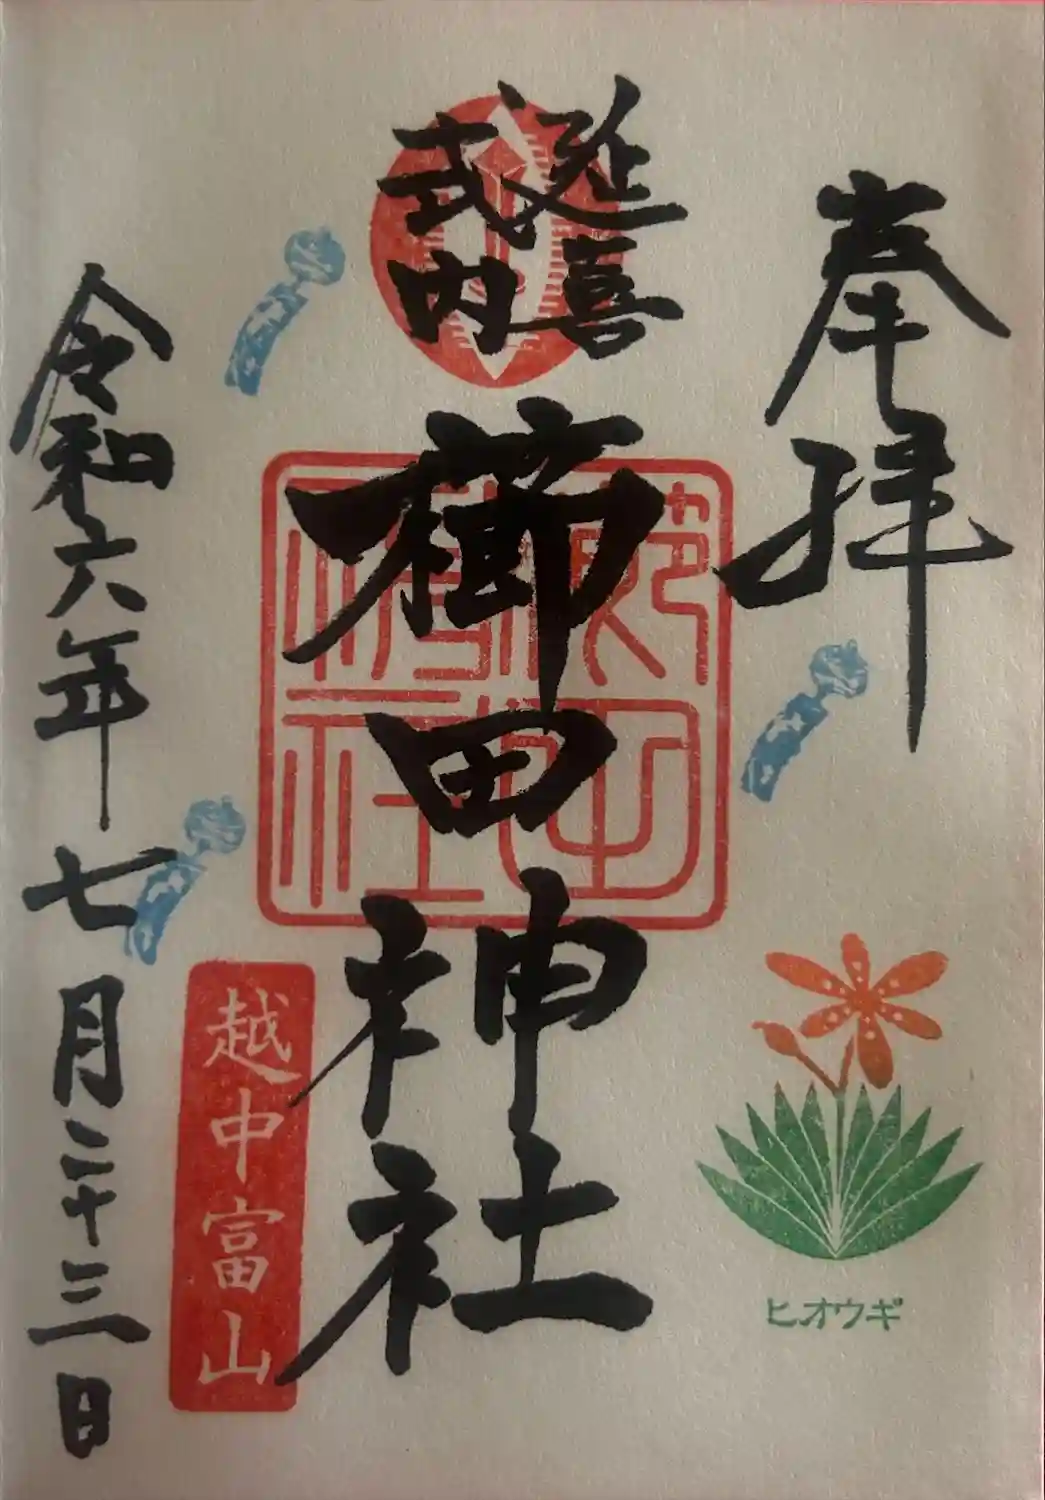 奉拝
延喜
式内
櫛田神社
櫛田
神社
越中富山
令和六年七月二十三日
ヒオウギ